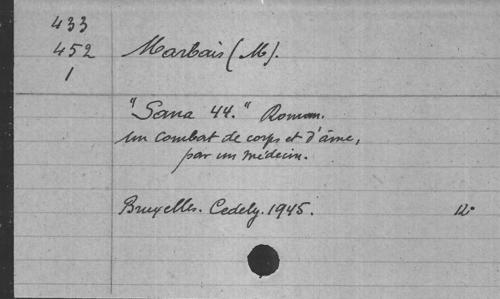 433
452
1
Marbais (M).
"Sana 44." Roman.
un combat de corps et d'âme,
par un médecin.
Bruxelles. Cedely. 1945.
12°